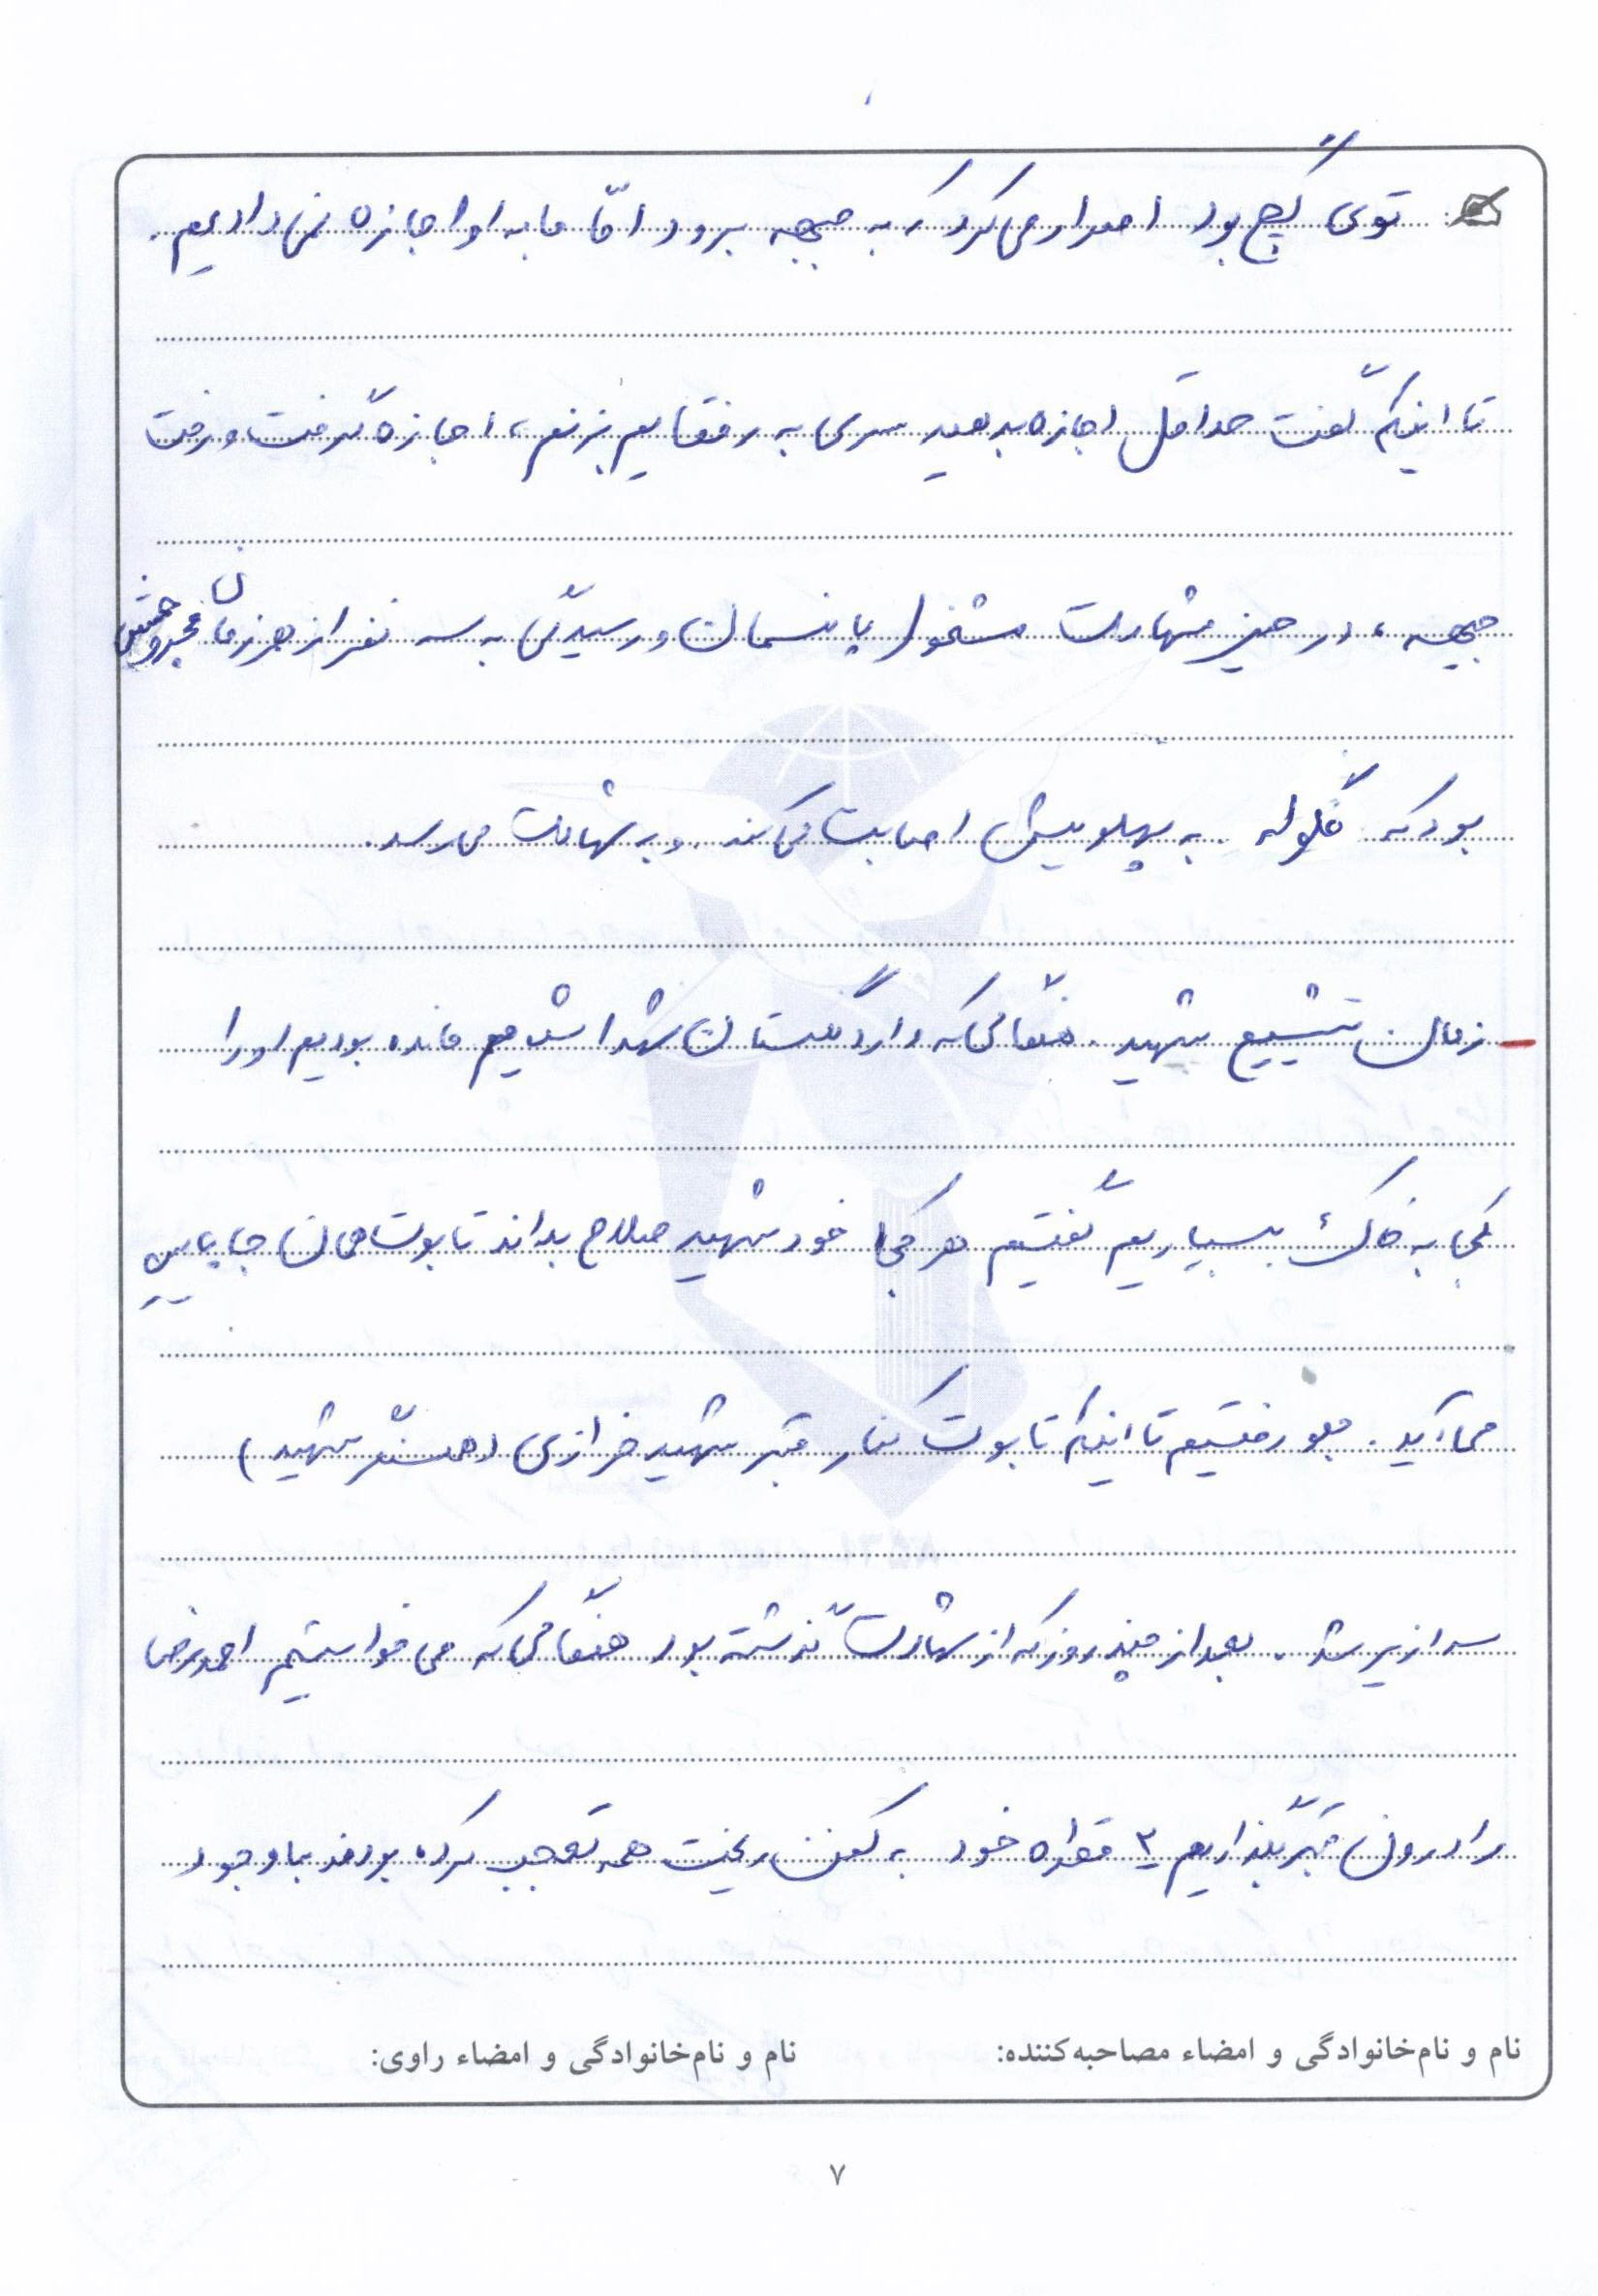 توی گچ بود اصرار می‌کرد که به جبهه برود امّا ما به او اجازه نمی‌دادیم.
تا اینکه گفت حداقل اجازه بدهید سری به رفقایم بزنم، اجازه گرفت و رفت
جبهه، در حین شهادت مشغول پانسمان و رسیدگی به سه نفر از همرزمان مجروحش
بود که گلوله به پهلویش اصابت می‌کند. و به شهادت می‌رسد.
زمان تشییع شهید. هنگامی که وارد گلستان شهدا شدیم مانده بودیم او را
کجا به خاک بسپاریم گفتیم هر کجا خود شهید صلاح بداند تابوت همان جا پایین
می‌آید. جلو رفتیم تا اینکه تابوت کنار قبر شهید خرازی (همسنگر شهید)
سرازیر شد. بعد از چند روز که از شهادت گذشته بود هنگامی که می‌خواستیم احمدرضا
را درون قبر بگذاریم ۲ قطره خون به کفن ریخت همه تعجب کرده بودند با وجود
نام و نام‌خانوادگی و امضاء مصاحبه‌کننده: نام و نام‌خانوادگی و امضاء راوی:
۷